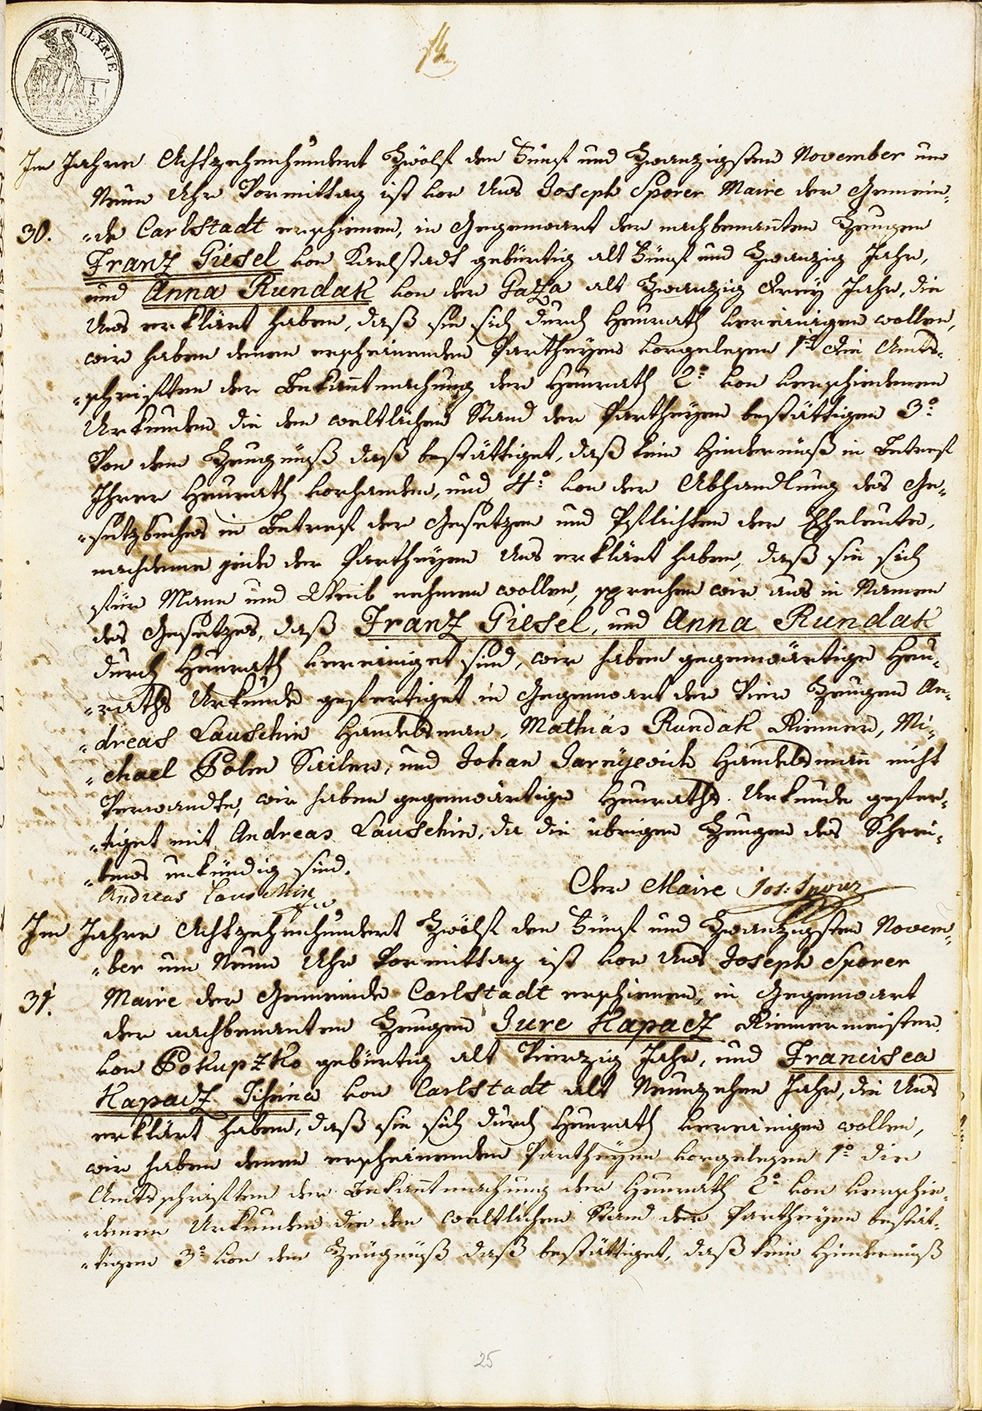 ILLYRIE
14
Im Jahre Achtzehenhundert Zwölf den Fünf und Zwanzigsten November um
Neun Uhr Vormittag ist vor Uns Joseph Sporer Maire der Gemein-
30. -de Carlstadt erschienen, in Gegenwart der nachbenanten Zeugen
Franz Giesel von Karlstadt gebürtig alt Fünf und Zwanzig Jahr,
und Anna Rundak von der Gaza alt Zwanzig drey Jahr, die
Uns erklärt haben, daß sie sich durch Heurath vereinigen wollen,
wir haben denen erscheinenden Partheyen vorgelesen 1º die Amts-
-schriften der Bekantmachung der Heurath 2º von verschiedenen
Urkunden die den weltlichen Stand der Partheyen bestättigen 3º
Von dem Zeugnüß daß bestättiget, daß kein Hindernüß in Betref
Ihrer Heurath vorhanden, und 4º von der Abhandlung des Ge-
-setzbuches in Betref der Gesetzen und Pflichten der Eheleute,
nachdeme jede der Partheyen Uns erklärt haben, daß sie sich
für Mann und Weib nehmen wollen, sprechen wir aus in Namen
des Gesetzes, daß Franz Giesel, und Anna Rundak
durch Heurath vereiniget sind, wir haben gegenwärtige Heu-
-raths Urkunde gefertiget in Gegenwart der Vier Zeugen An-
-dreas Lauschin Handelsman, Mathias Rundak Riemer, Mi-
-chael Polm Sailer, und Johan Jarnyevich Handelsman nicht
Verwandte, wir haben gegenwärtige Heuraths Urkunde gefer-
-tiget mit Andreas Lauschin, da die übrigen Zeugen des Schrei-
-bens unkündig sind.
Andreas Lauschin
Der Maire Jos: Sporer
Im Jahre Achtzehenhundert Zwölf den Fünf und Zwanzigsten Novem-
-ber um Neun Uhr Vormittag ist vor Uns Joseph Sporer
31. Maire der Gemeinde Carlstadt erschienen, in Gegenwart
der nachbenanten Zeugen Jure Kapacz Riemermeister
von Pokupzko gebürtig alt Vierzig Jahr, und Francisca
Kapacz von Carlstadt alt Neunzehen Jahr, die Uns
erklärt haben, daß sie sich durch Heurath vereinigen wollen,
wir haben denen erscheinenden Partheyen vorgelesen 1º die
Amtsschriften der Bekantmachung der Heurath 2º von verschie-
-denen Urkunden die den weltlichen Stand der Partheyen bestät-
-tigen 3º von dem Zeugnüß daß bestättiget, daß kein Hindernüß
25